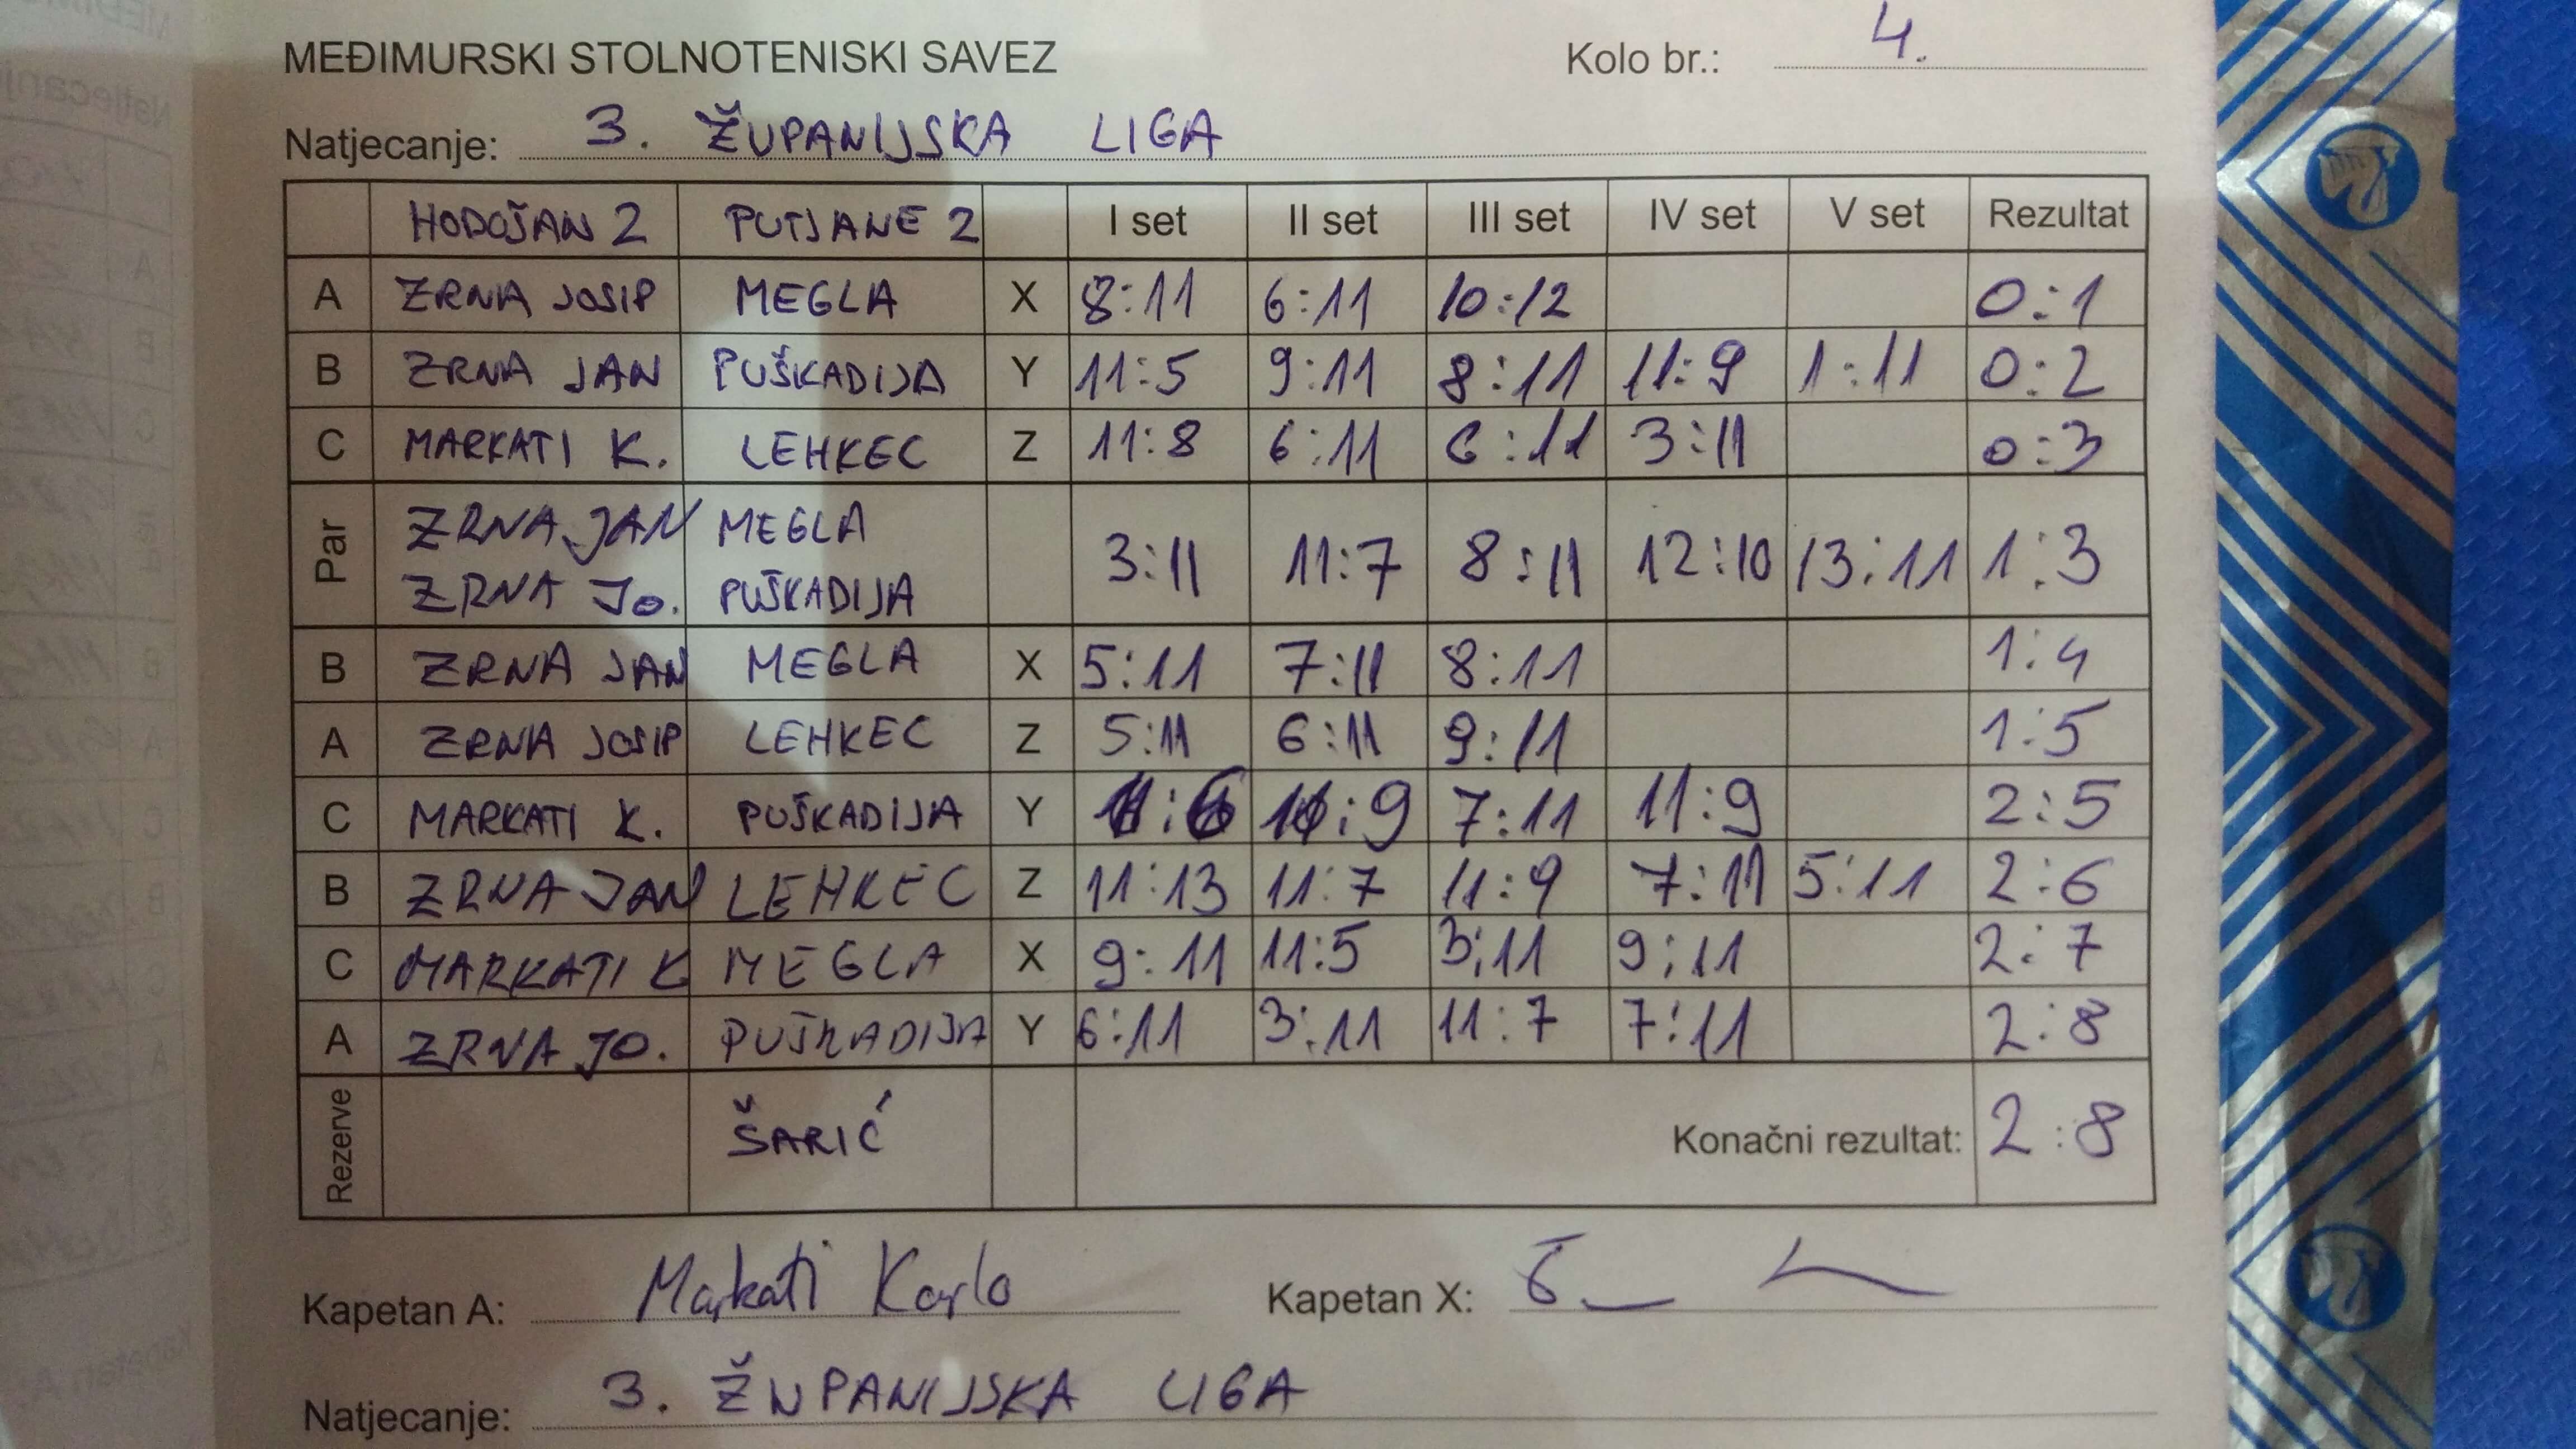 MEĐIMURSKI STOLNOTENISKI SAVEZ Kolo br.: 4.
Natjecanje: 3. ŽUPANIJSKA LIGA
HODOŠAN 2 PUTJANE 2 I set II set III set IV set V set Rezultat
A ZRNA JOSIP MEGLA X 8:11 6:11 10:12 0:1
B ZRNA JAN PUŠKADIJA Y 11:5 9:11 8:11 11:9 1:11 0:2
C MARKATI K. LEHKEC Z 11:8 6:11 6:11 3:11 0:3
Par ZRNA JAN MEGLA
ZRNA JO. PUŠKADIJA 3:11 11:7 8:11 12:10 13:11 1:3
B ZRNA JAN MEGLA X 5:11 7:11 8:11 1:4
A ZRNA JOSIP LEHKEC Z 5:11 6:11 9:11 1:5
C MARKATI K. PUŠKADIJA Y 11:6 11:9 7:11 11:9 2:5
B ZRNA JAN LEHKEC Z 11:13 11:7 11:9 7:11 5:11 2:6
C MARKATI K MEGLA X 9:11 11:5 3:11 9:11 2:7
A ZRNA JO. PUŠKADIJA Y 6:11 3:11 11:7 7:11 2:8
Rezerve ŠARIĆ Konačni rezultat: 2:8
Kapetan A: Markati Karlo Kapetan X:
Natjecanje: 3. ŽUPANIJSKA LIGA